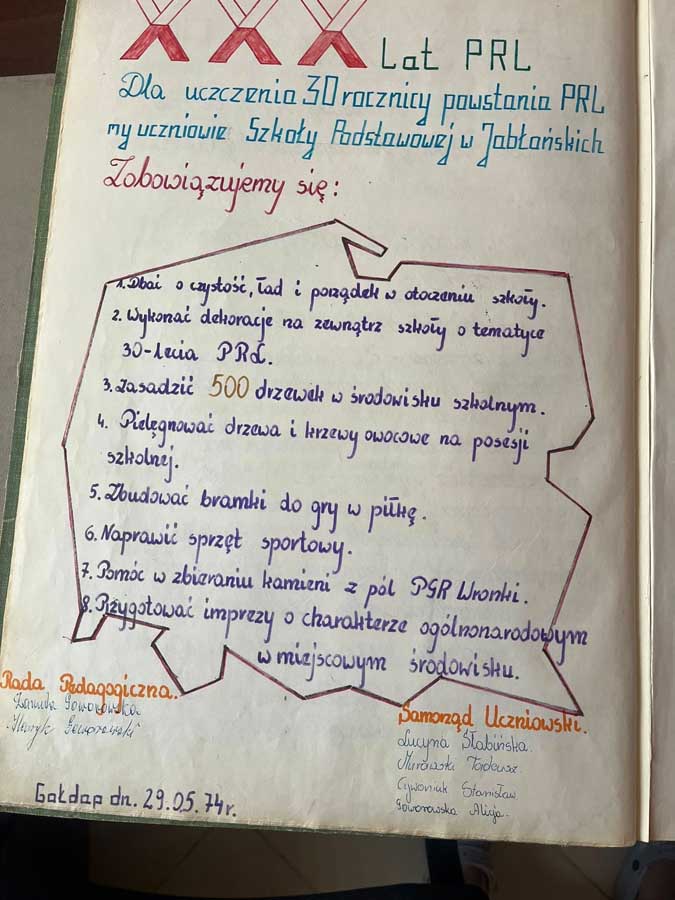 XXX Lat PRL
Dla uczczenia 30 rocznicy powstania PRL
my uczniowie Szkoły Podstawowej w Jabłońskich
Zobowiązujemy się:
1. Dbać o czystość, ład i porządek w otoczeniu szkoły.
2. Wykonać dekoracje na zewnątrz szkoły o tematyce
30-lecia PRL.
3. Zasadzić 500 drzewek w środowisku szkolnym.
4. Pielęgnować drzewa i krzewy owocowe na posesji
szkolnej.
5. Zbudować bramki do gry w piłkę.
6. Naprawić sprzęt sportowy.
7. Pomóc w zbieraniu kamieni z pól PGR Wronki.
8. Przygotować imprezy o charakterze ogólnonarodowym
w miejscowym środowisku.
Rada Pedagogiczna.
Goworowska
Henryk Goworowski
Samorząd Uczniowski.
Lucyna Słabińska.
Tadeusz.
Cywoniuk Stanisław
Goworowska Alicja.
Gołdap dn. 29.05.74r.